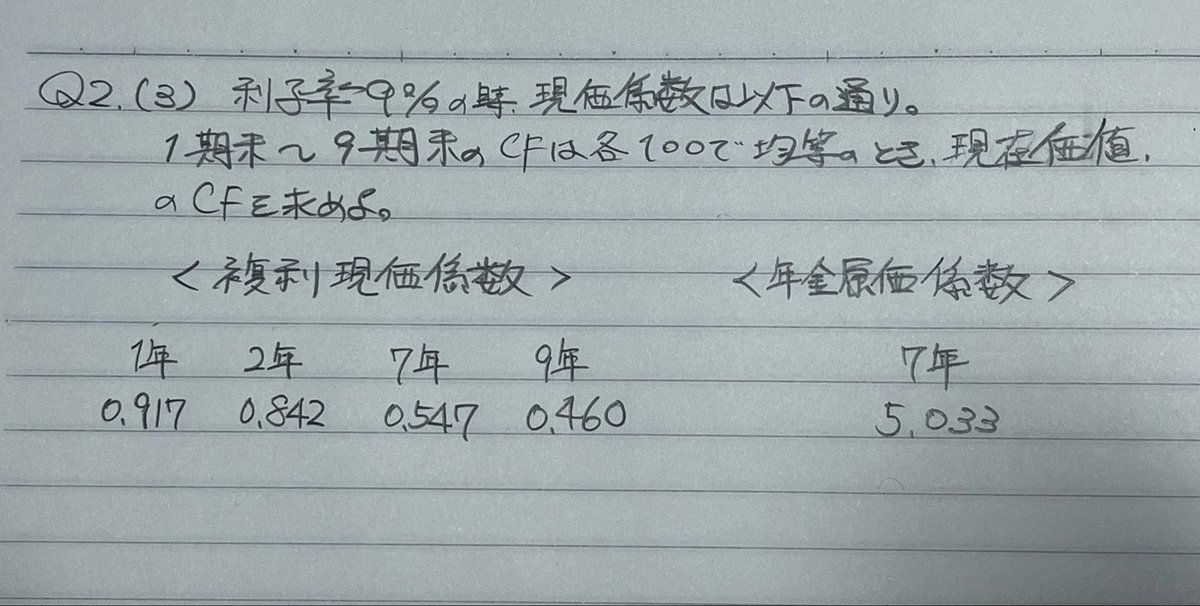 Q2.(3) 利子率9%の時、現価係数は以下の通り。
1期末～9期末のCFは各100で均等のとき、現在価値
のCFを求めよ。
<複利現価係数> <年金原価係数>
1年 2年 7年 9年 7年
0.917 0.842 0.547 0.460 5.033